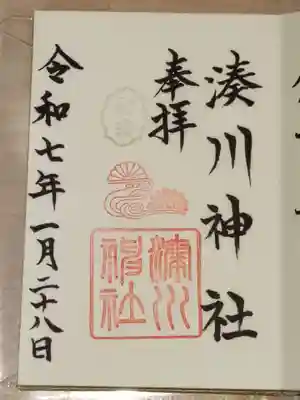 湊川神社
奉拝
湊川神社
令和七年一月二十八日